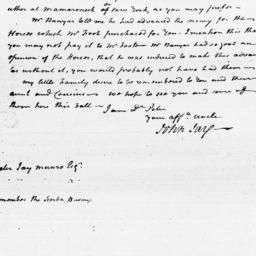 either at Mamaroneck or New York, as you may prefer—
Mr Banyar told me he had advanced the money for the
Horses which Mr Foot purchased for you. I mention this that
you may not pay it to Mr Foot. Mr Banyar had so good an
opinion of the Horses, that he was induced to make this advance
as without it, you would probably not have had them
my little family desire to be remembered to you and their
aunt and Cousins we hope to see you and some of
them here this Fall— I am Dr Peter
your affte uncle
John Jay—
Peter Jay Munro Esqr
remember the